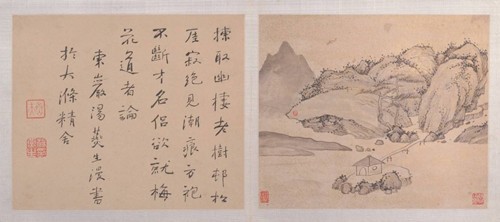 揀取幽棲老樹邨松
厓寂絕見潮痕方袍
不斷才名侶欲就梅
花道者論
東巖湯燕生漫書
於大滌精舍